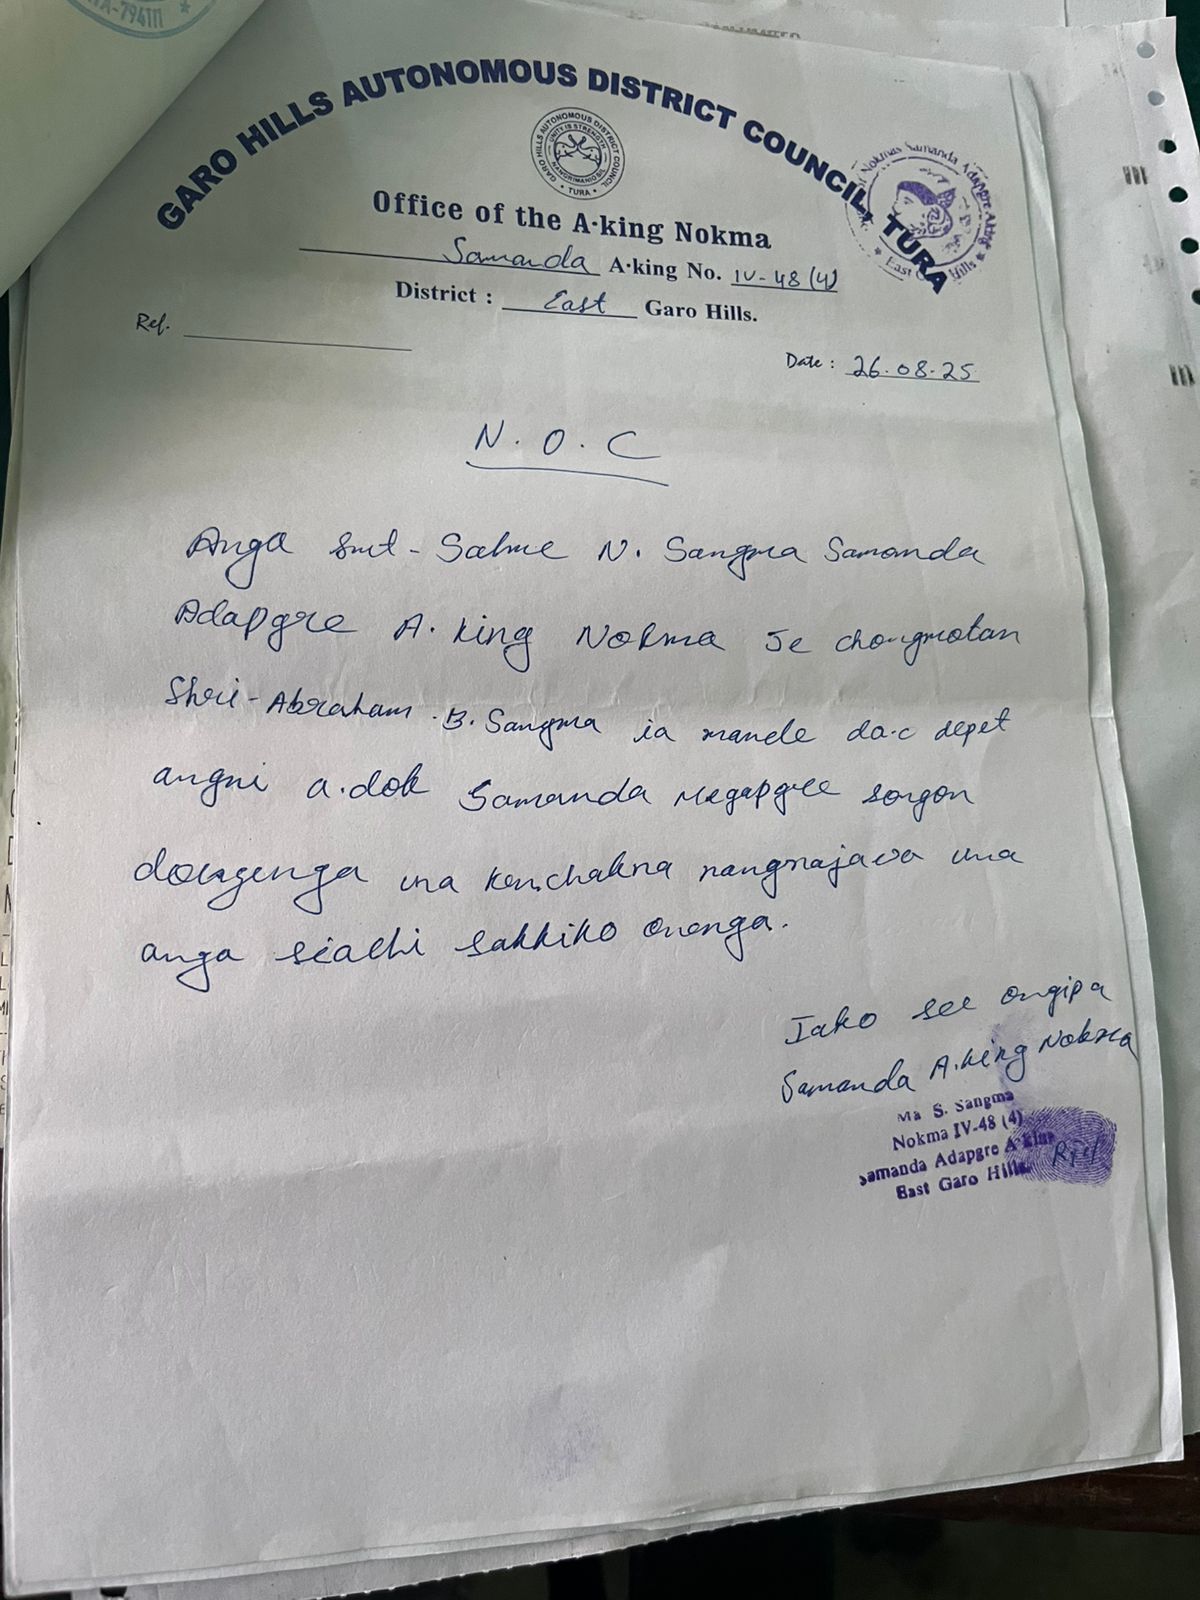 RA-794111
GARO HILLS AUTONOMOUS DISTRICT COUNCIL, TURA
GARO HILLS AUTONOMOUS DISTRICT COUNCIL
UNITY IS STRENGTH
TURA
Nokmas Samanda Adapgre A·king
East Hills
Office of the A·king Nokma
Samanda A·king No. IV-48 (4)
District : East Garo Hills.
Ref.
Date : 26.08.25
N.O.C
Anga Smt- Salme N. Sangma Samanda
Adapgre A.king Nokma Je chongmotan
Shri- Abraham .B. Sangma ia mande da.o depet
angni a.dok Samanda Megapgre songon
dongenga una kenchakna nangnajawa una
anga seachi sakkiko onenga.
Iako see ongipa
Samanda A.king Nokma
Ma S. Sangma
Nokma IV-48 (4)
Samanda Adapgre A·king
East Garo Hills